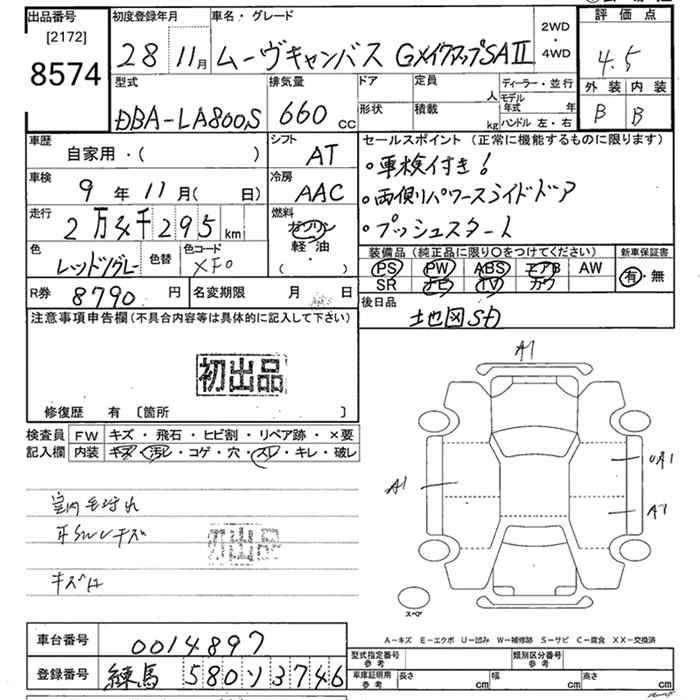 出品番号 初度登録年月 車名・グレード 2WD・4WD 評価点
[2172]
8574 28 11月 ムーヴキャンバス GメイクアップSAⅡ 4.5
型式 排気量 ドア 定員 人 ディーラー・並行 外装 内装
DBA-LA800S 660cc 形状 積載 kg モデル年式 年 ハンドル 左・右 B B
車歴 自家用・( ) シフト AT セールスポイント (正常に機能するものに限ります)
車検 9年11月(日) 冷房 AAC
・車検付き!
・両側パワースライドドア
・プッシュスタート
走行 2万4千295km 燃料 ガソリン 軽油 ・( )
色 レッド/グレー 色替 色コード XF0
装備品 (純正品に限り〇をつけてください) 新車保証書
PS PW ABS エアB AW 有・無
SR ナビ TV カワ
R券 8790円 名変期限 月 日 後日品 地図SD
注意事項申告欄 (不具合内容等は具体的に記入して下さい)
初出品
修復歴 有 [箇所 ]
検査員 FW キズ・飛石・ヒビ割・リペア跡・×要
記入欄 内装 キズ・汚レ・コゲ・穴・スレ・キレ・破レ
A1
A1
UA1
A1
初出品
キズ
スペア
A-キズ E-エクボ U-凹み W-補修跡 S-サビ C-腐食 XX-交換済
車台番号 0014897 型式指定番号 参考 類別区分番号 参考
登録番号 練馬 580 ソ 3746 車庫証明用 参考 長さ cm 幅 cm 高さ cm